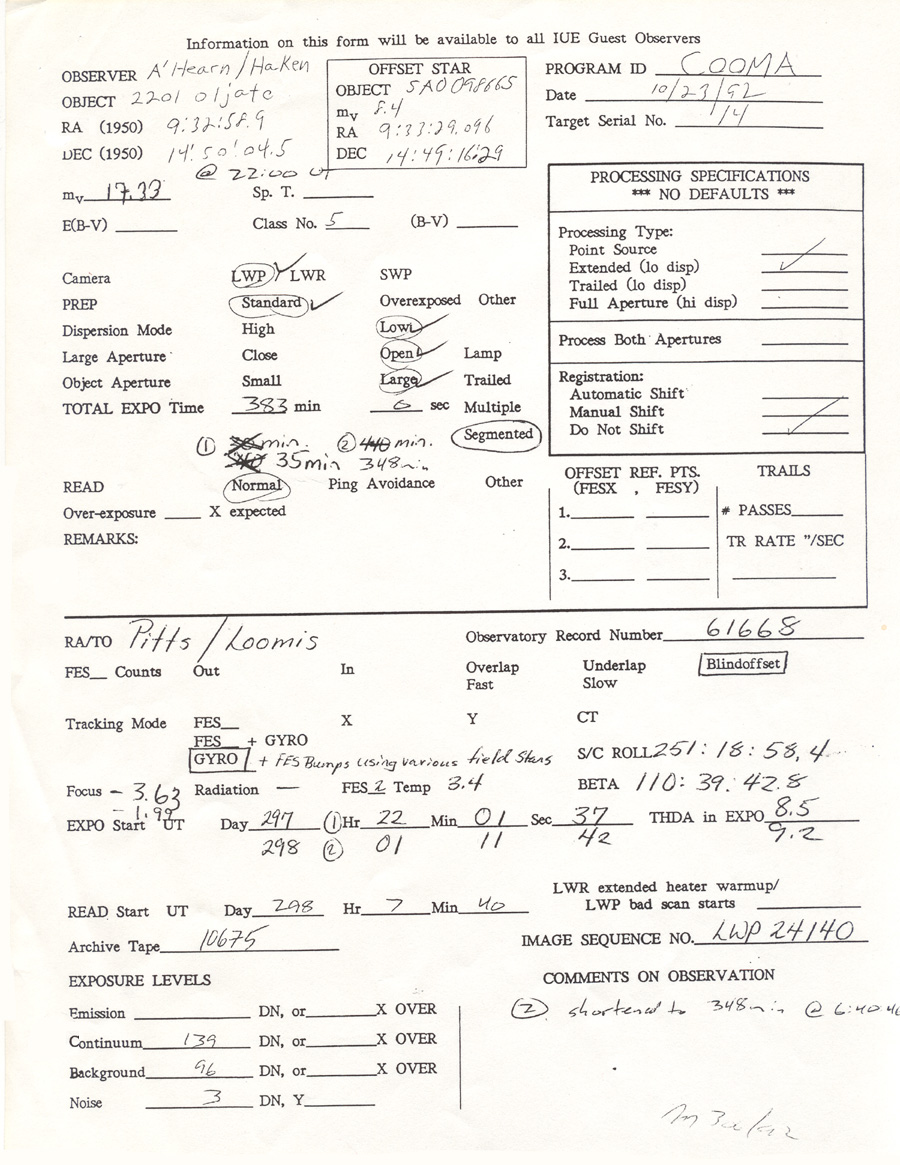 Information on this form will be available to all IUE Guest Observers
OBSERVER A'Hearn/Haken
OBJECT 2201 Oljato
RA (1950) 9:32:58.9
DEC (1950) 14:50:04.5
@ 22:00 UT
OFFSET STAR
OBJECT SAO 098665
mv 8.4
RA 9:33:29.096
DEC 14:49:16.29
PROGRAM ID COOMA
Date 10/23/92
Target Serial No. 1/4
mv 17.33 Sp. T.
E(B-V) Class No. 5 (B-V)
PROCESSING SPECIFICATIONS
*** NO DEFAULTS ***
Processing Type:
Point Source
Extended (lo disp) ✓
Trailed (lo disp)
Full Aperture (hi disp)
Process Both Apertures
Registration:
Automatic Shift
Manual Shift
Do Not Shift ✓
Camera LWP ✓ LWR SWP
PREP Standard ✓ Overexposed Other
Dispersion Mode High Low ✓
Large Aperture Close Open ✓ Lamp
Object Aperture Small Large ✓ Trailed
TOTAL EXPO Time 383 min 0 sec Multiple
① min. ② 440 min. Segmented
35 min 348 min
READ Normal Ping Avoidance Other
Over-exposure X expected
REMARKS:
OFFSET REF. PTS.
(FESX , FESY)
1.
2.
3.
TRAILS
# PASSES
TR RATE "/SEC
RA/TO Pitts/Loomis Observatory Record Number 61668
FES Counts Out In Overlap Underlap Blindoffset
Fast Slow
Tracking Mode FES X Y CT
FES + GYRO
GYRO + FES Bumps using various field stars S/C ROLL 251:18:58.4
Focus -3.63 Radiation — FES 2 Temp 3.4 BETA 110:39:42.8
-1.99
EXPO Start UT Day 297 ① Hr 22 Min 01 Sec 37 THDA in EXPO 8.5
298 ② 01 11 42 9.2
LWR extended heater warmup/
LWP bad scan starts
READ Start UT Day 298 Hr 7 Min 40
Archive Tape 10675 IMAGE SEQUENCE NO. LWP 24140
EXPOSURE LEVELS
Emission DN, or X OVER
Continuum 139 DN, or X OVER
Background 96 DN, or X OVER
Noise 3 DN, Y
COMMENTS ON OBSERVATION
② shortened to 348 min @ 6:40:40